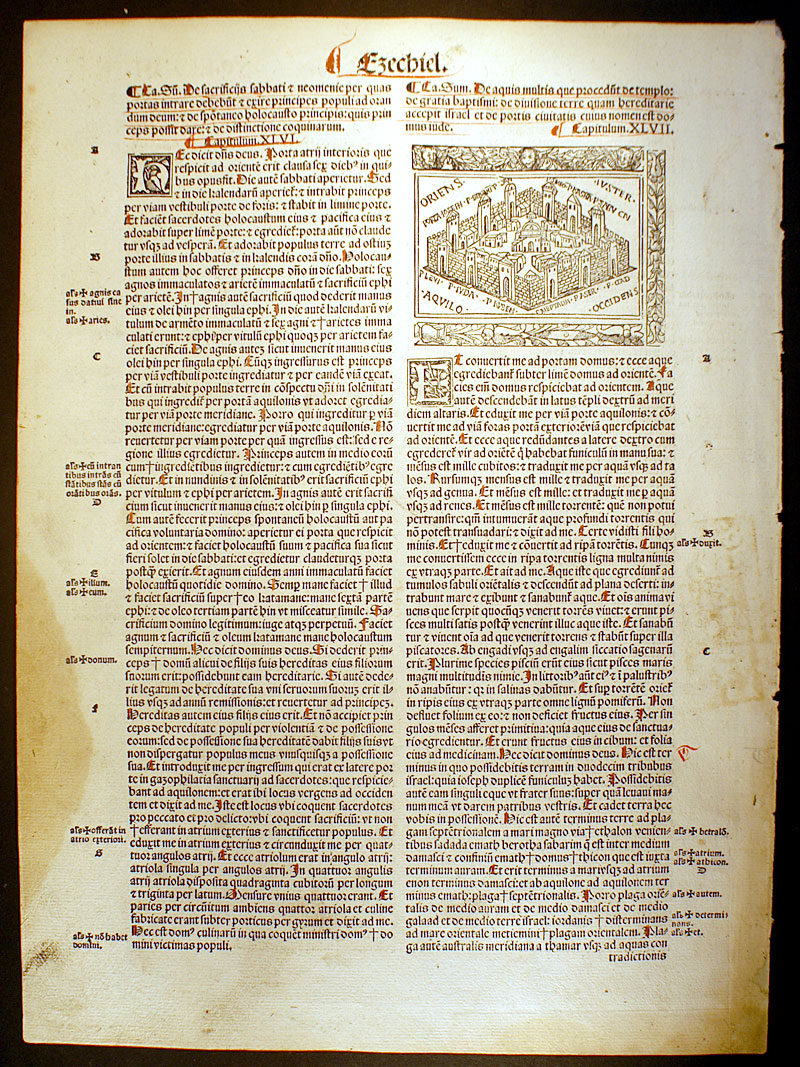 ¶ Ezechiel.
¶ Ca. Sũ. De sacrificijs sabbati ⁊ neomenie per quas
portas intrare debebũt ⁊ exire principes populi ad oran
dum deum: ⁊ de spõtaneo holocausto principis: quis prin
ceps possit dare: ⁊ de distinctione coquinarum.
¶ Capitulum. XLVI.
HEc dicit dñs deus. Porta atrij interioris que
respicit ad orientẽ erit clausa sex dieb⁹ in qui⸗
bus opus fit. Die autẽ sabbati aperietur. Sed
⁊ in die kalendarũ aperiet᷑: ⁊ intrabit princeps
per viam vestibuli porte de foris: ⁊ stabit in limine porte.
Et faciẽt sacerdotes holocaustum eius ⁊ pacifica eius ⁊
adorabit super limẽ porte: ⁊ egrediet᷑: porta aũt nõ claude
tur vsq̃ ad vesperã. Et adorabit populus terre ad ostiũ
porte illius in sabbatis ⁊ in kalendis corã dño. Holocau⸗
stum autem hoc offeret princeps dño in die sabbati: sex
agnos immaculatos ⁊ arietẽ immaculatũ ⁊ sacrificiũ ephi
per arietẽ. In†agnis autẽ sacrificiũ quod dederit manus
eius ⁊ olei hin per singula ephi. In die autẽ kalendarũ vi⸗
tulum de armẽto immaculatũ ⁊ sex agni ⁊†arietes imma
culati erunt: ⁊ ephi per vitulũ ephi quoq̃ per arietem fa⸗
ciet sacrificiũ. De agnis autez sicut inuenerit manus eius
olei hin per singula ephi. Cũq̃ ingressurus est princeps
per viã vestibuli porte ingrediatur ⁊ per eandẽ viã exeat.
Et cũ intrabit populus terre in cõspectu dñi in solẽnitati
bus qui ingredit᷑ per portã aquilonis vt adoret egredia⸗
tur per viã porte meridiane. Porro qui ingreditur ꝑ viã
porte meridiane: egrediatur per viã porte aquilonis. Nõ
reuertetur per viam porte per quã ingressus est: sed e re⸗
gione illius egredietur. Princeps autem in medio eorũ
cum†ingrediẽtibus ingredietur: ⁊ cum egrediẽtib⁹ egre
dietur. Et in nundinis ⁊ in solẽnitatib⁹ erit sacrificiũ ephi
per vitulum ⁊ ephi per arietem. In agnis autẽ erit sacrifi
cium sicut inuenerit manus eius: ⁊ olei hin ꝑ singula ephi.
Cum autẽ fecerit princeps spontaneũ holocaustũ aut pa
cifica voluntaria domino: aperietur ei porta que respicit
ad orientem: ⁊ faciet holocaustũ suum ⁊ pacifica sua sicut
fieri solet in die sabbati: ⁊ egredietur claudeturq̃ porta
postq̃ exierit. Et agnum eiusdem anni immaculatũ faciet
holocaustũ quotidie domino. Semp mane faciet † illud
⁊ faciet sacrificiũ super†eo katamane: mane sextã partẽ
ephi: ⁊ de oleo tertiam partẽ hin vt misceatur simile. Sa⸗
crificium domino legitimum: iuge atq̃ perpetuũ. Faciet
agnum ⁊ sacrificiũ ⁊ oleum katamane mane holocaustum
sempiternum. Hec dicit dominus deus. Si dederit prin⸗
ceps † domũ alicui de filijs suis hereditas eius filiorum
suorum erit: possidebunt eam hereditarie. Si autẽ dede⸗
rit legatum de hereditate sua vni seruorum suoruz erit il⸗
lius vsq̃ ad annũ remissionis: ⁊ reuertetur ad principez.
Hereditas autem eius filijs eius erit. Et nõ accipiet prin
ceps de hereditate populi per violentiã ⁊ de possessione
eorum: sed de possessione sua hereditatẽ dabit filijs suis vt
non dispergatur populus meus vnusquisq̃ a possessione
sua. Et introduxit me per ingressum qui erat ex latere por
te in gazophilatia sanctuarij ad sacerdotes: que respicie⸗
bant ad aquilonem: ⁊ erat ibi locus vergens ad occiden
tem et dixit ad me. Iste est locus vbi coquent sacerdotes
pro peccato ei pro delicto: vbi coquent sacrificiũ: vt non
†efferant in atrium exterius ⁊ sanctificetur populus. Et
eduxit me in atrium exterius ⁊ circunduxit me per quat⸗
tuor angulos atrij. Et ecce atriolum erat in angulo atrij:
atriola singula per angulos atrij. In quattuor angulis
atrij atriola disposita quadraginta cubitorũ per longum
⁊ triginta per latum. Mensure vnius quattuor erant. Et
paries per circuitum ambiens quattuor atriola et culine
fabricate erant subter porticus per gyrum et dixit ad me.
Hec est dom⁹ culinarũ in qua coquẽt ministri dom⁹ † do
mini victimas populi.
A
B
als ✠ agnis ea
sus datiui sine
in.
als ✠ aries.
C
als ✠ cũ intran
tibus intrãs cũ
stãtibus stãs cũ
orãtibus orãs.
D
E
als ✠ illum.
als ✠ eum.
als ✠ donum.
F
als ✠ offerãt in
atrio exteriori.
G
als ✠ nõ habet
domini.
¶ Ca. Sum. De aquis multis que procedũt de templo:
de gratia baptismi: de diuisione terre quam hereditarie
accepit israel et de portis ciuitatis cuius nomen est do⸗
minus inde. ¶ Capitulum. XLVII.
ORIENS.
AUSTER
AQUILO
OCCIDENS
ET conuertit me ad portam domus: ⁊ ecce aque
egrediebant᷑ subter limẽ domus ad orientẽ. Fa
cies eni͂ domus respiciebat ad orientem. Aque
autẽ descendebãt in latus tẽpli dextrũ ad meri
diem altaris. Et eduxit me per viã porte aquilonis: ⁊ cõ⸗
uertit me ad viã foras portã exteriorẽ viã que respiciebat
ad orientẽ. Et ecce aque redũdantes a latere dextro cum
egrederet᷑ vir ad orientẽ q̃ habebat funiculũ in manu sua: ⁊
mẽsus est mille cubitos: ⁊ traduxit me per aquã vsq̃ ad ta
los. Rursumq̃ mensus est mille ⁊ traduxit me per aquam
vsq̃ ad genua. Et mẽsus est mille: et traduxit me ꝑ aquã
vsq̃ ad renes. Et mẽsus est mille torrentẽ: quẽ non potui
pertransire: qm̃ intumuerãt aque profundi torrentis qui
nõ potest transuadari: ⁊ dixit ad me. Certe vidisti fili ho⸗
minis. Et†eduxit me ⁊ cõuertit ad ripã torrẽtis. Cumq̃
me conuertissem ecce in ripa torrentis ligna multa nimis
ex vtraq̃ parte. Et ait ad me. Aque iste que egrediunt᷑ ad
tumulos sabuli oriẽtalis ⁊ descendũt ad plana deserti: in⸗
trabunt mare ⁊ exibunt ⁊ sanabunt᷑ aque. Et oĩs anima vi
uens que serpit quocũq̃ venerit torrẽs viuet: ⁊ erunt pi⸗
sces multi satis postq̃ venerint illuc aque iste. Et sanabũ
tur ⁊ viuent oĩa ad que venerit torrens ⁊ stabũt super illa
piscatores. Ab engadi vsq̃ ad engalim siccatio sagenarũ
erit. Plurime species pisciũ erũt eius sicut pisces maris
magni multitudĩs nimie. In littorib⁹ aũt ei⁹ ⁊ ĩ palustrib⁹
nõ anabũtur: qr in salinas dabũtur. Et sup torrẽtẽ oriet᷑
in ripis eius ex vtraq̃ parte omne lignũ pomiferũ. Non
defluet folium ex eo: ⁊ non deficiet fructus eius. Per sin⸗
gulos mẽses afferet primitiua: quia aque eius de sanctua⸗
rio egredientur. Et erunt fructus eius in cibum: et folia
eius ad medicinam. Hec dicit dominus deus. Hic est ter
minus in quo possidebitis terram in duodecim tribubus
israel: quia ioseph duplicẽ funiculuz habet. Possidebitis
autẽ eam singuli eque vt frater suus: super quã leuaui ma⸗
num meã vt darem patribus vestris. Et cadet terra hec
vobis in possessionẽ. Hic est autẽ terminus terre ad pla⸗
gam septẽtrionalem a mari magno via†ethalon venien⸗
tibus sadada emath berotha sabarim q̃ est inter medium
damasci ⁊ confiniũ emath†domus†thicon que est iuxta
terminum auram. Et erit terminus a mari vsq̃ ad atrium
enon terminus damasci: et ab aquilone ad aquilonem ter
minus emath: plaga†septẽtrionalis. Porro plaga oriẽ⸗
talis de medio auran et de medio damasci et de medio
galaad et de medio terre israel: iordanis † disterminans
ad mare orientale metiemini†plagam orientalem. Pla⸗
ga autẽ australis meridiana a thamar vsq̃ ad aquas con
tradictionis
A
B
als ✠ duxit.
C
als ✠ betralõ.
als ✠ atrium.
als ✠ athicon.
D
als ✠ autem.
als ✠ determi⸗
nans.
als ✠ et.